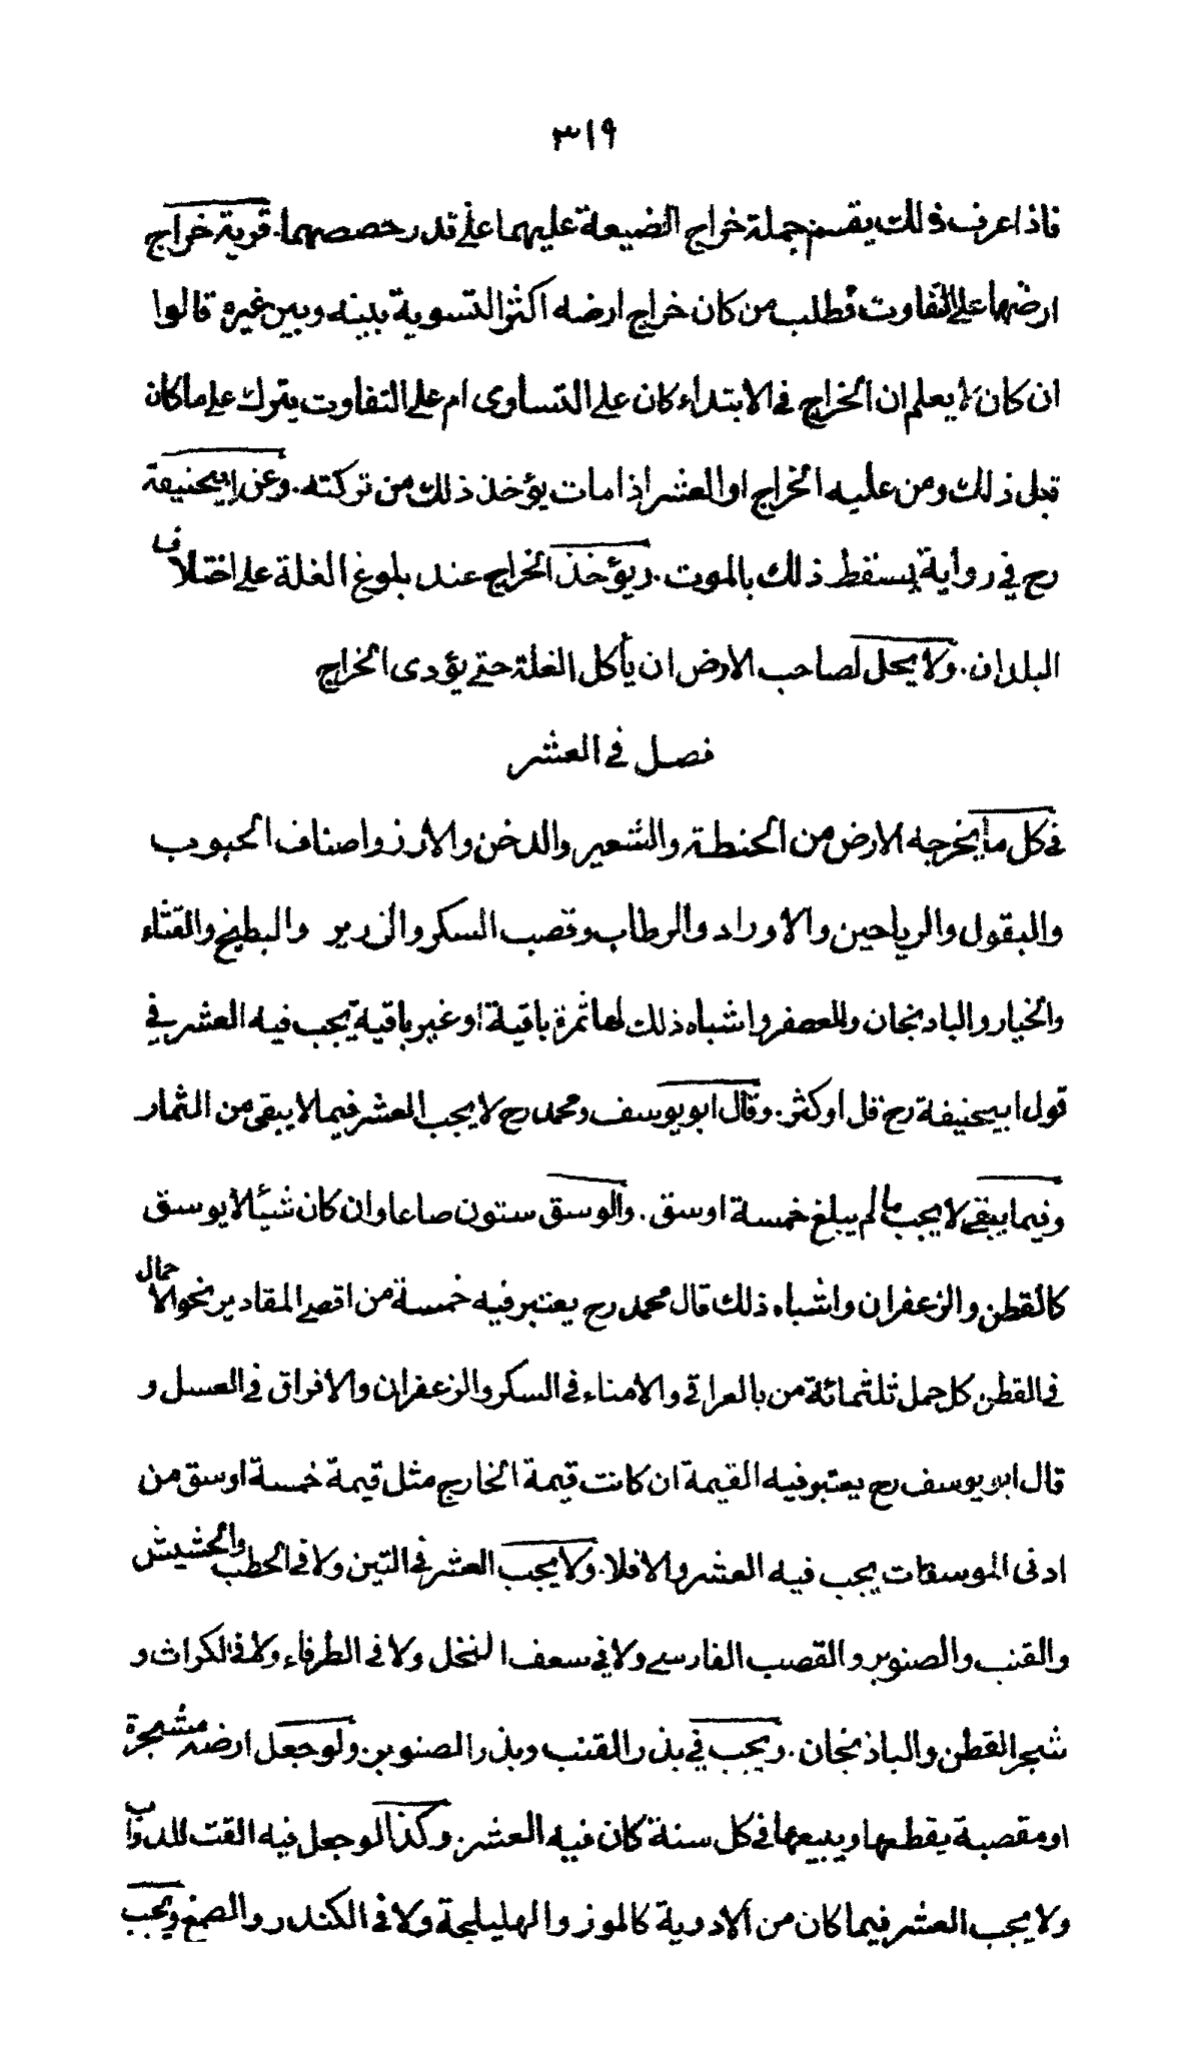 ٣١٩
فاذا عرف ذلك يقسم جملة خراج الضيعة عليهما على قدر حصصهما. قرية خراج
ارضها على التفاوت فطلب من كان خراج ارضه اكثر التسوية بينه وبين غيره قالوا
ان كان لا يعلم ان الخراج في الابتداء كان على التساوى ام على التفاوت يترك على ما كان
قبل ذلك ومن عليه الخراج او العشر اذا مات يؤخذ ذلك من تركته. وعن ابيحنيفة
رح في رواية يسقط ذلك بالموت. ويؤخذ الخراج عند بلوغ الغلة على اختلاف
البلدان. ولا يحل لصاحب الارض ان يأكل الغلة حتى يؤدى الخراج
فصل في العشر
في كل ما يخرجه الارض من الحنطة والشعير والدخن والارز واصناف الحبوب
والبقول والرياحين والاوراد والرطاب وقصب السكر والزرير والبطيخ والقثاء
والخيار والباذنجان والعصفر واشباه ذلك لها ثمرة باقية او غير باقية يجب فيه العشر في
قول ابيحنيفة رح قل او كثر. وقال ابو يوسف ومحمد رح لا يجب العشر فيما لا يبقى من الثمار
وفيما يبقى لا يجب ما لم يبلغ خمسة اوسق. والوسق ستون صاعا وان كان شيئا لا يوسق
كالقطن والزعفران واشباه ذلك قال محمد رح يعتبر فيه خمسة من اقصى المقادير نحو الاحمال
في القطن كل حمل ثلثمائة من بالعراقي والامناء في السكر والزعفران والافراق في العسل و
قال ابو يوسف رح يعتبر فيه القيمة ان كانت قيمة الخارج مثل قيمة خمسة اوسق من
ادنى الموسقات يجب فيه العشر والا فلا. ولا يجب العشر في التين ولا في الحطب والحشيش
والقنب والصنوبر والقصب الفارسى ولا في سعف النخل ولا في الطرفاء ولا في الكراث و
شجر القطن والباذنجان. ويجب في بذر القنب وبذر الصنوبر. ولو جعل ارضه مشجرة
او مقصبة يقطعها ويبيعها في كل سنة كان فيه العشر. وكذا لو جعل فيه القت للدواب
ولا يجب العشر فيما كان من الادوية كالموز والهليلجة ولا في الكندر والصمغ ويجب